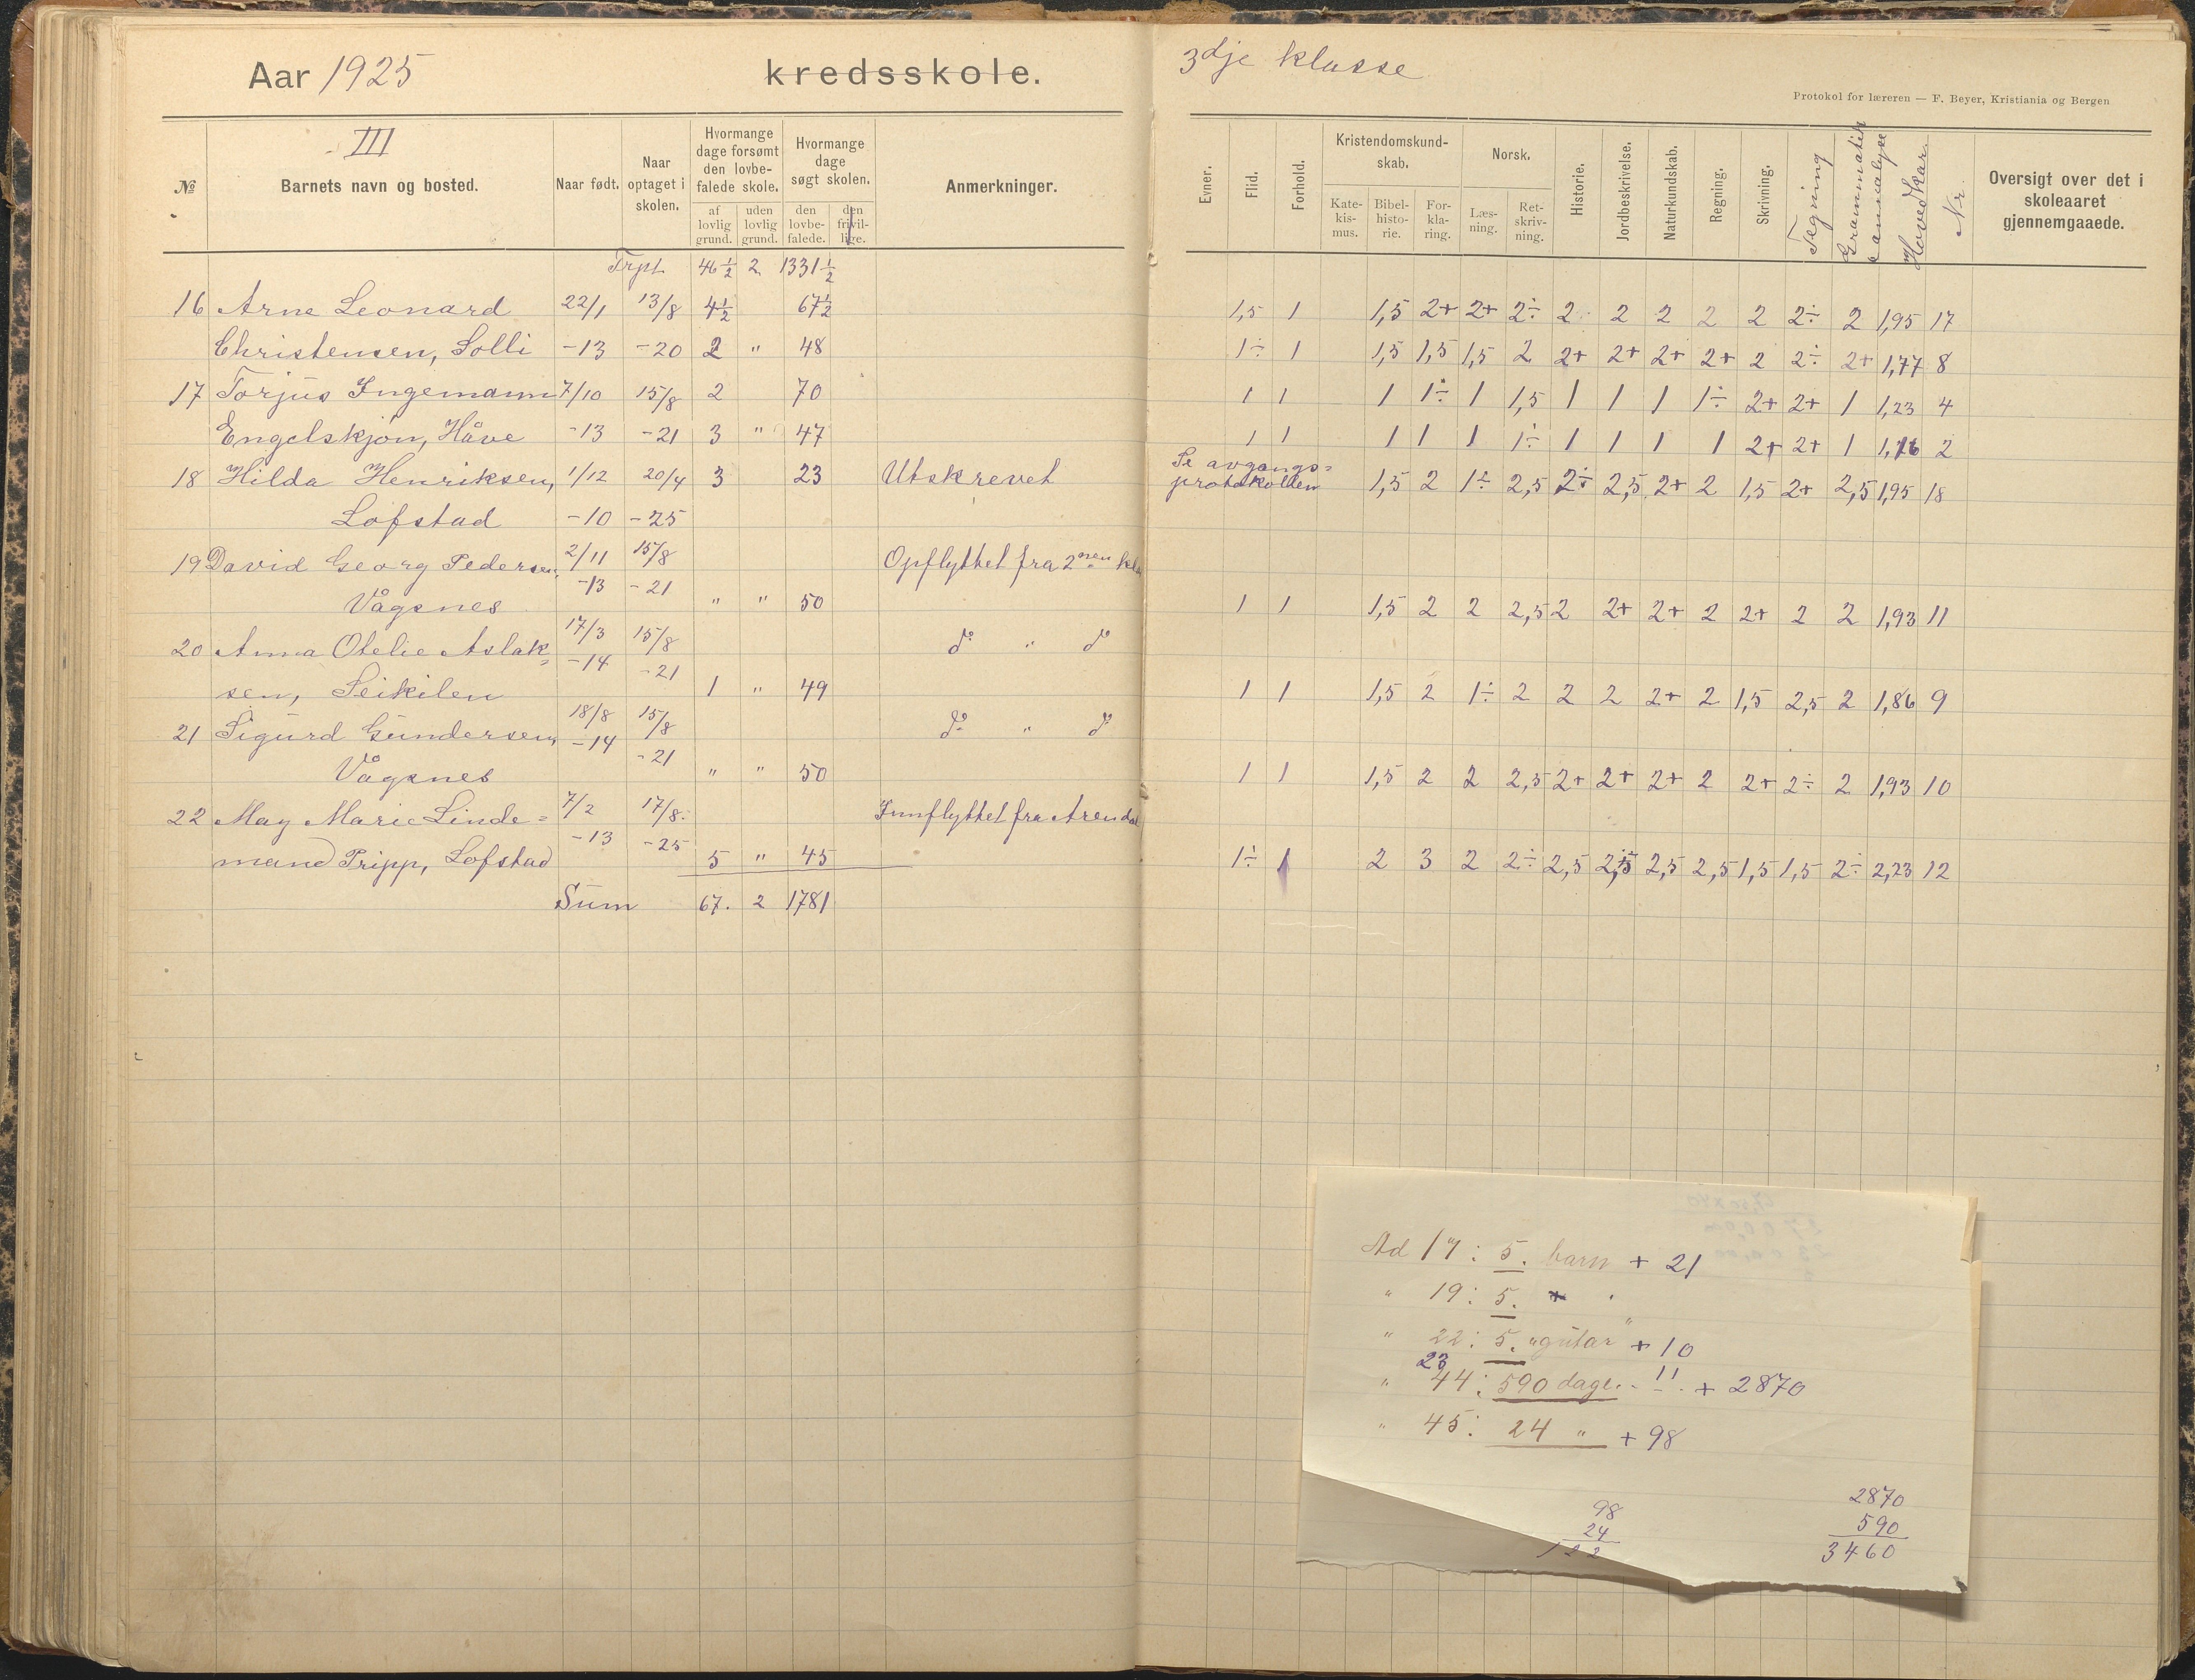 Aar 1925 kredsskole.
III
№ Barnets navn og bosted. Naar født. Naar optaget i skolen. Hvormange dage forsømt den lovbefalede skole. af lovlig grund. uden lovlig grund. Hvormange dage søgt skolen. den lovbefalede. den frivillige. Anmerkninger.
Trpt. 46½ 2 1331½
16 Arne Leonard 22/1 13/8 4½ 67½
Christensen, Solli -13 -20 2 " 48
17 Torjus Ingemann 7/10 15/8 2 70
Engelskjøn, Håve -13 -21 3 " 47
18 Hilda Henriksen, 1/12 20/4 3 23 Utskrevet
Lofstad -10 -25
19 David Georg Pedersen, 2/11 15/8 Opflyttet fra 2nen kla
Vågsnes -13 -21 " " 50
20 Anna Otelie Aslak= 17/3 15/8 do " do
sen, Seikilen -14 -21 1 " 49
21 Sigurd Gundersen, 18/8 15/8 do " do
Vågsnes -14 -21 " " 50
22 May Marie Linde= 7/2 17/8 Innflyttet fra Arendal
mand Pripp, Lofstad -13 -25 5 " 45
Sum 67. 2 1781
3dje klasse
Protokol for læreren — F. Beyer, Kristiania og Bergen
Evner. Flid. Forhold. Kristendomskundskab. Katekismus. Bibelhistorie. Forklaring. Norsk. Læsning. Retskrivning. Historie. Jordbeskrivelse. Naturkundskab. Regning. Skrivning. Tegning Grammatik samanalyse Hovedkar. Nr. Oversigt over det i skoleaaret gjennemgaaede.
1,5 1 1,5 2+ 2+ 2÷ 2 2 2 2 2 2÷ 2 1,95 17
1÷ 1 1,5 1,5 1,5 2 2+ 2+ 2+ 2+ 2 2÷ 2+ 1,77 8
1 1 1 1÷ 1 1,5 1 1 1 1÷ 2+ 2+ 1 1,23 4
1 1 1 1 1 1÷ 1 1 1 1 2+ 2+ 1 1,16 2
Se avgangs=
protokollen 1,5 2 1÷ 2,5 2÷ 2,5 2+ 2 1,5 2+ 2,5 1,95 18
1 1 1,5 2 2 2,5 2 2+ 2+ 2 2+ 2 2 1,93 11
1 1 1,5 2 1÷ 2 2 2 2+ 2 1,5 2,5 2 1,86 9
1 1 1,5 2 2 2,5 2+ 2+ 2+ 2 2+ 2÷ 2 1,93 10
1÷ 1 2 3 2 2÷ 2,5 2,5 2,5 2,5 1,5 1,5 2÷ 2,23 12
Ad 17: 5. barn + 21
" 19: 5.
" 22: 5. "gutar" + 10
23
" 44: 590 dage. - !! + 2870
" 45: 24 " + 98
98
24
122
2870
590
3460